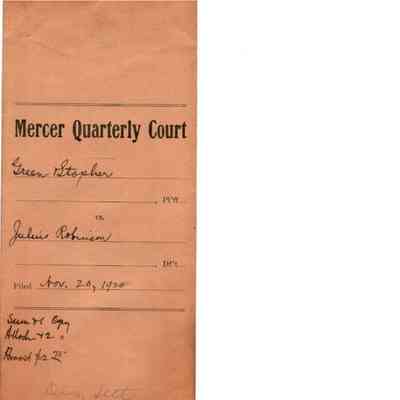 Mercer Quarterly Court
Green Stopher
, Pl'ff.
vs.
Julius Robinson
, Def't.
Filed Nov. 20, 1920
Sum & Copy
Attach & 2 "